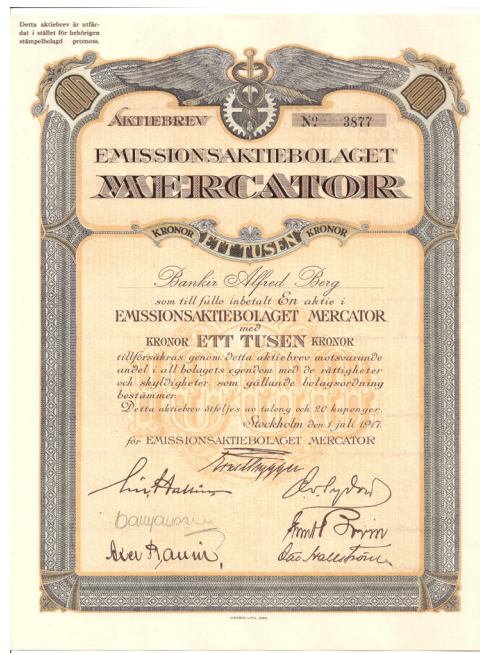 Detta aktiebrev är utfär-
dat i stället för behörigen
stämpelbelagd promess.
AKTIEBREV
Nº 3877
EMISSIONSAKTIEBOLAGET
MERCATOR
KRONOR ETT TUSEN KRONOR
Bankir Alfred Berg
som till fullo inbetalt En aktie i
EMISSIONSAKTIEBOLAGET MERCATOR
med
KRONOR ETT TUSEN KRONOR
tillförsäkras genom detta aktiebrev motsvarande
andel i all bolagets egendom med de rättigheter
och skyldigheter, som gällande bolagsordning
bestämmer.
Detta aktiebrev åtföljes av talong och 20 kuponger.
Stockholm den 1 juli 1917.
för EMISSIONSAKTIEBOLAGET MERCATOR
Otto Hallström